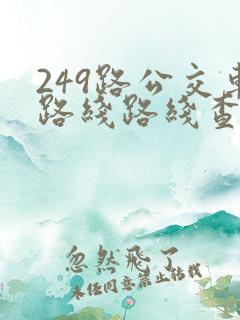 249路公交车
路线路线查
忽然飞了
未经同意禁止转载